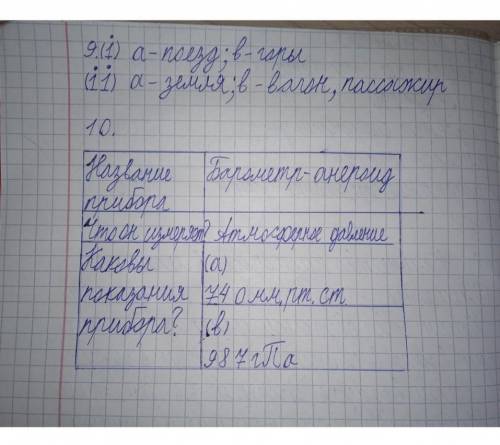 9.(i) а-поезд; в-горы
(ii) а-земля; в-вагон, пассажир
10.
Название прибора
Барометр-анероид
Что он измеряет?
Атмосферное давление
Каковы показания прибора?
(а)
740 мм.рт.ст
(в)
987 гПа